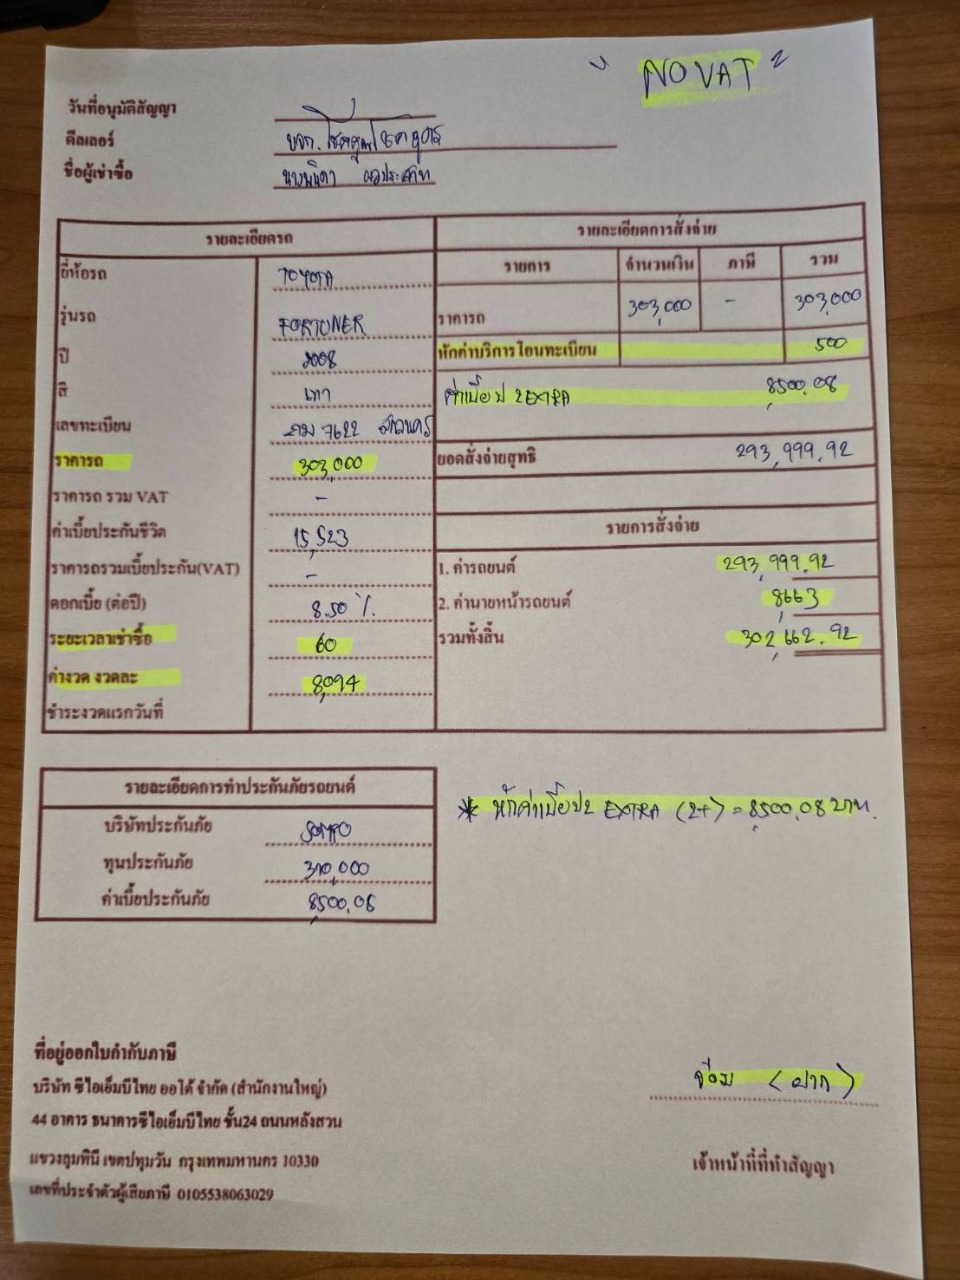 " NO VAT "
วันที่อนุมัติสัญญา
ดีลเลอร์ บจก.
ชื่อผู้เช่าซื้อ
รายละเอียดรถ
ยี่ห้อรถ TOYOTA
รุ่นรถ FORTUNER
ปี 2008
สี เทา
เลขทะเบียน 7622
ราคารถ 303,000
ราคารถ รวม VAT -
ค่าเบี้ยประกันชีวิต 15,523
ราคารถรวมเบี้ยประกัน(VAT) -
ดอกเบี้ย (ต่อปี) 8.50 %
ระยะเวลาเช่าซื้อ 60
ค่างวด งวดละ 8,094
ชำระงวดแรกวันที่
รายละเอียดการสั่งจ่าย
รายการ จำนวนเงิน ภาษี รวม
ราคารถ 303,000 - 303,000
หักค่าบริการโอนทะเบียน 500
ค่าเบี้ย ป 2 EXTRA 8,500.08
ยอดสั่งจ่ายสุทธิ 293,999.92
รายการสั่งจ่าย
1. ค่ารถยนต์ 293,999.92
2. ค่านายหน้ารถยนต์ 8,663
รวมทั้งสิ้น 302,662.92
รายละเอียดการทำประกันภัยรถยนต์
บริษัทประกันภัย SOMPO
ทุนประกันภัย 310,000
ค่าเบี้ยประกันภัย 8,500.08
* หักค่าเบี้ย ป2 EXTRA (2+) = 8,500.08 บาท.
ที่อยู่ออกใบกำกับภาษี
บริษัท ซีไอเอ็มบีไทย ออโต้ จำกัด (สำนักงานใหญ่)
44 อาคาร ธนาคารซีไอเอ็มบีไทย ชั้น24 ถนนหลังสวน
แขวงลุมพินี เขตปทุมวัน กรุงเทพมหานคร 10330
เลขที่ประจำตัวผู้เสียภาษี 0105538063029
เจ้าหน้าที่ที่ทำสัญญา